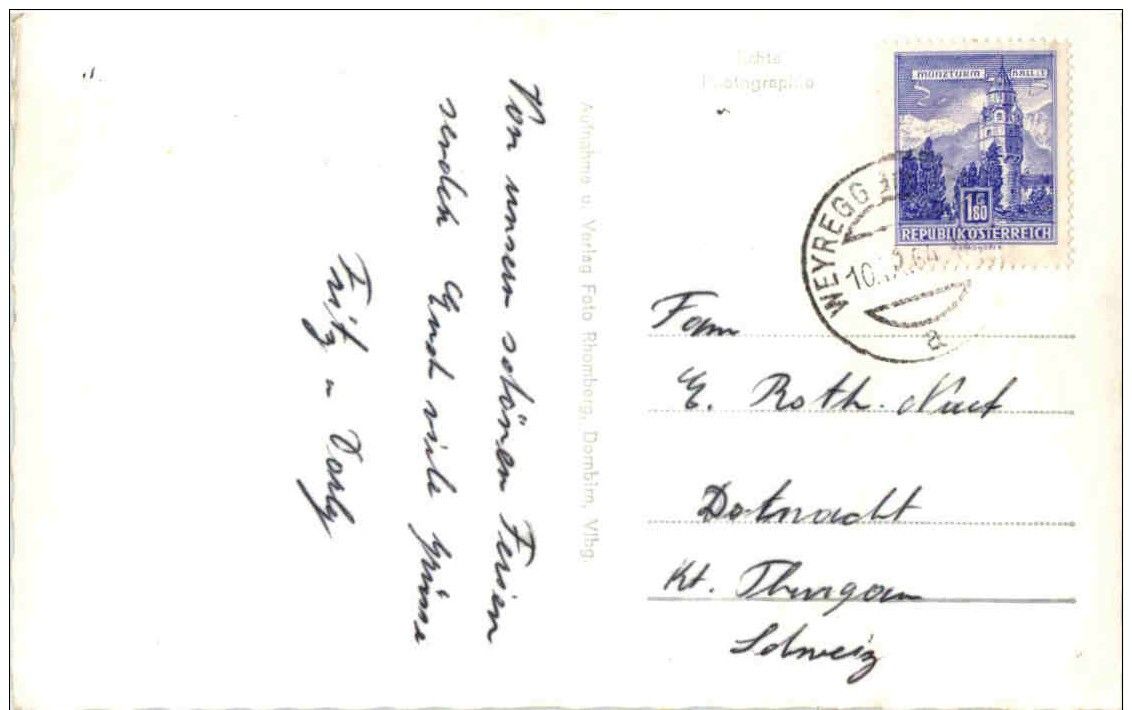 Von unsern schönen Ferien
senden Euch viele Grüsse
Fritz u Dorly
Aufnahme u. Verlag Foto Rhomberg, Dornbirn, Vlbg.
Echte
Photographie
MÜNZTURM HALL I.T.
1.80
REPUBLIK ÖSTERREICH
WEYREGG
10. 64
a
Fam
E. Roth
Dotnacht
Kt. Thurgau
Schweiz